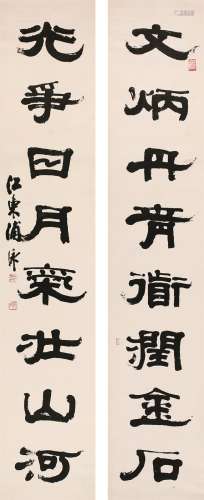 文炳丹青衜潤金石
光爭日月氣壯山河
江東浦泳